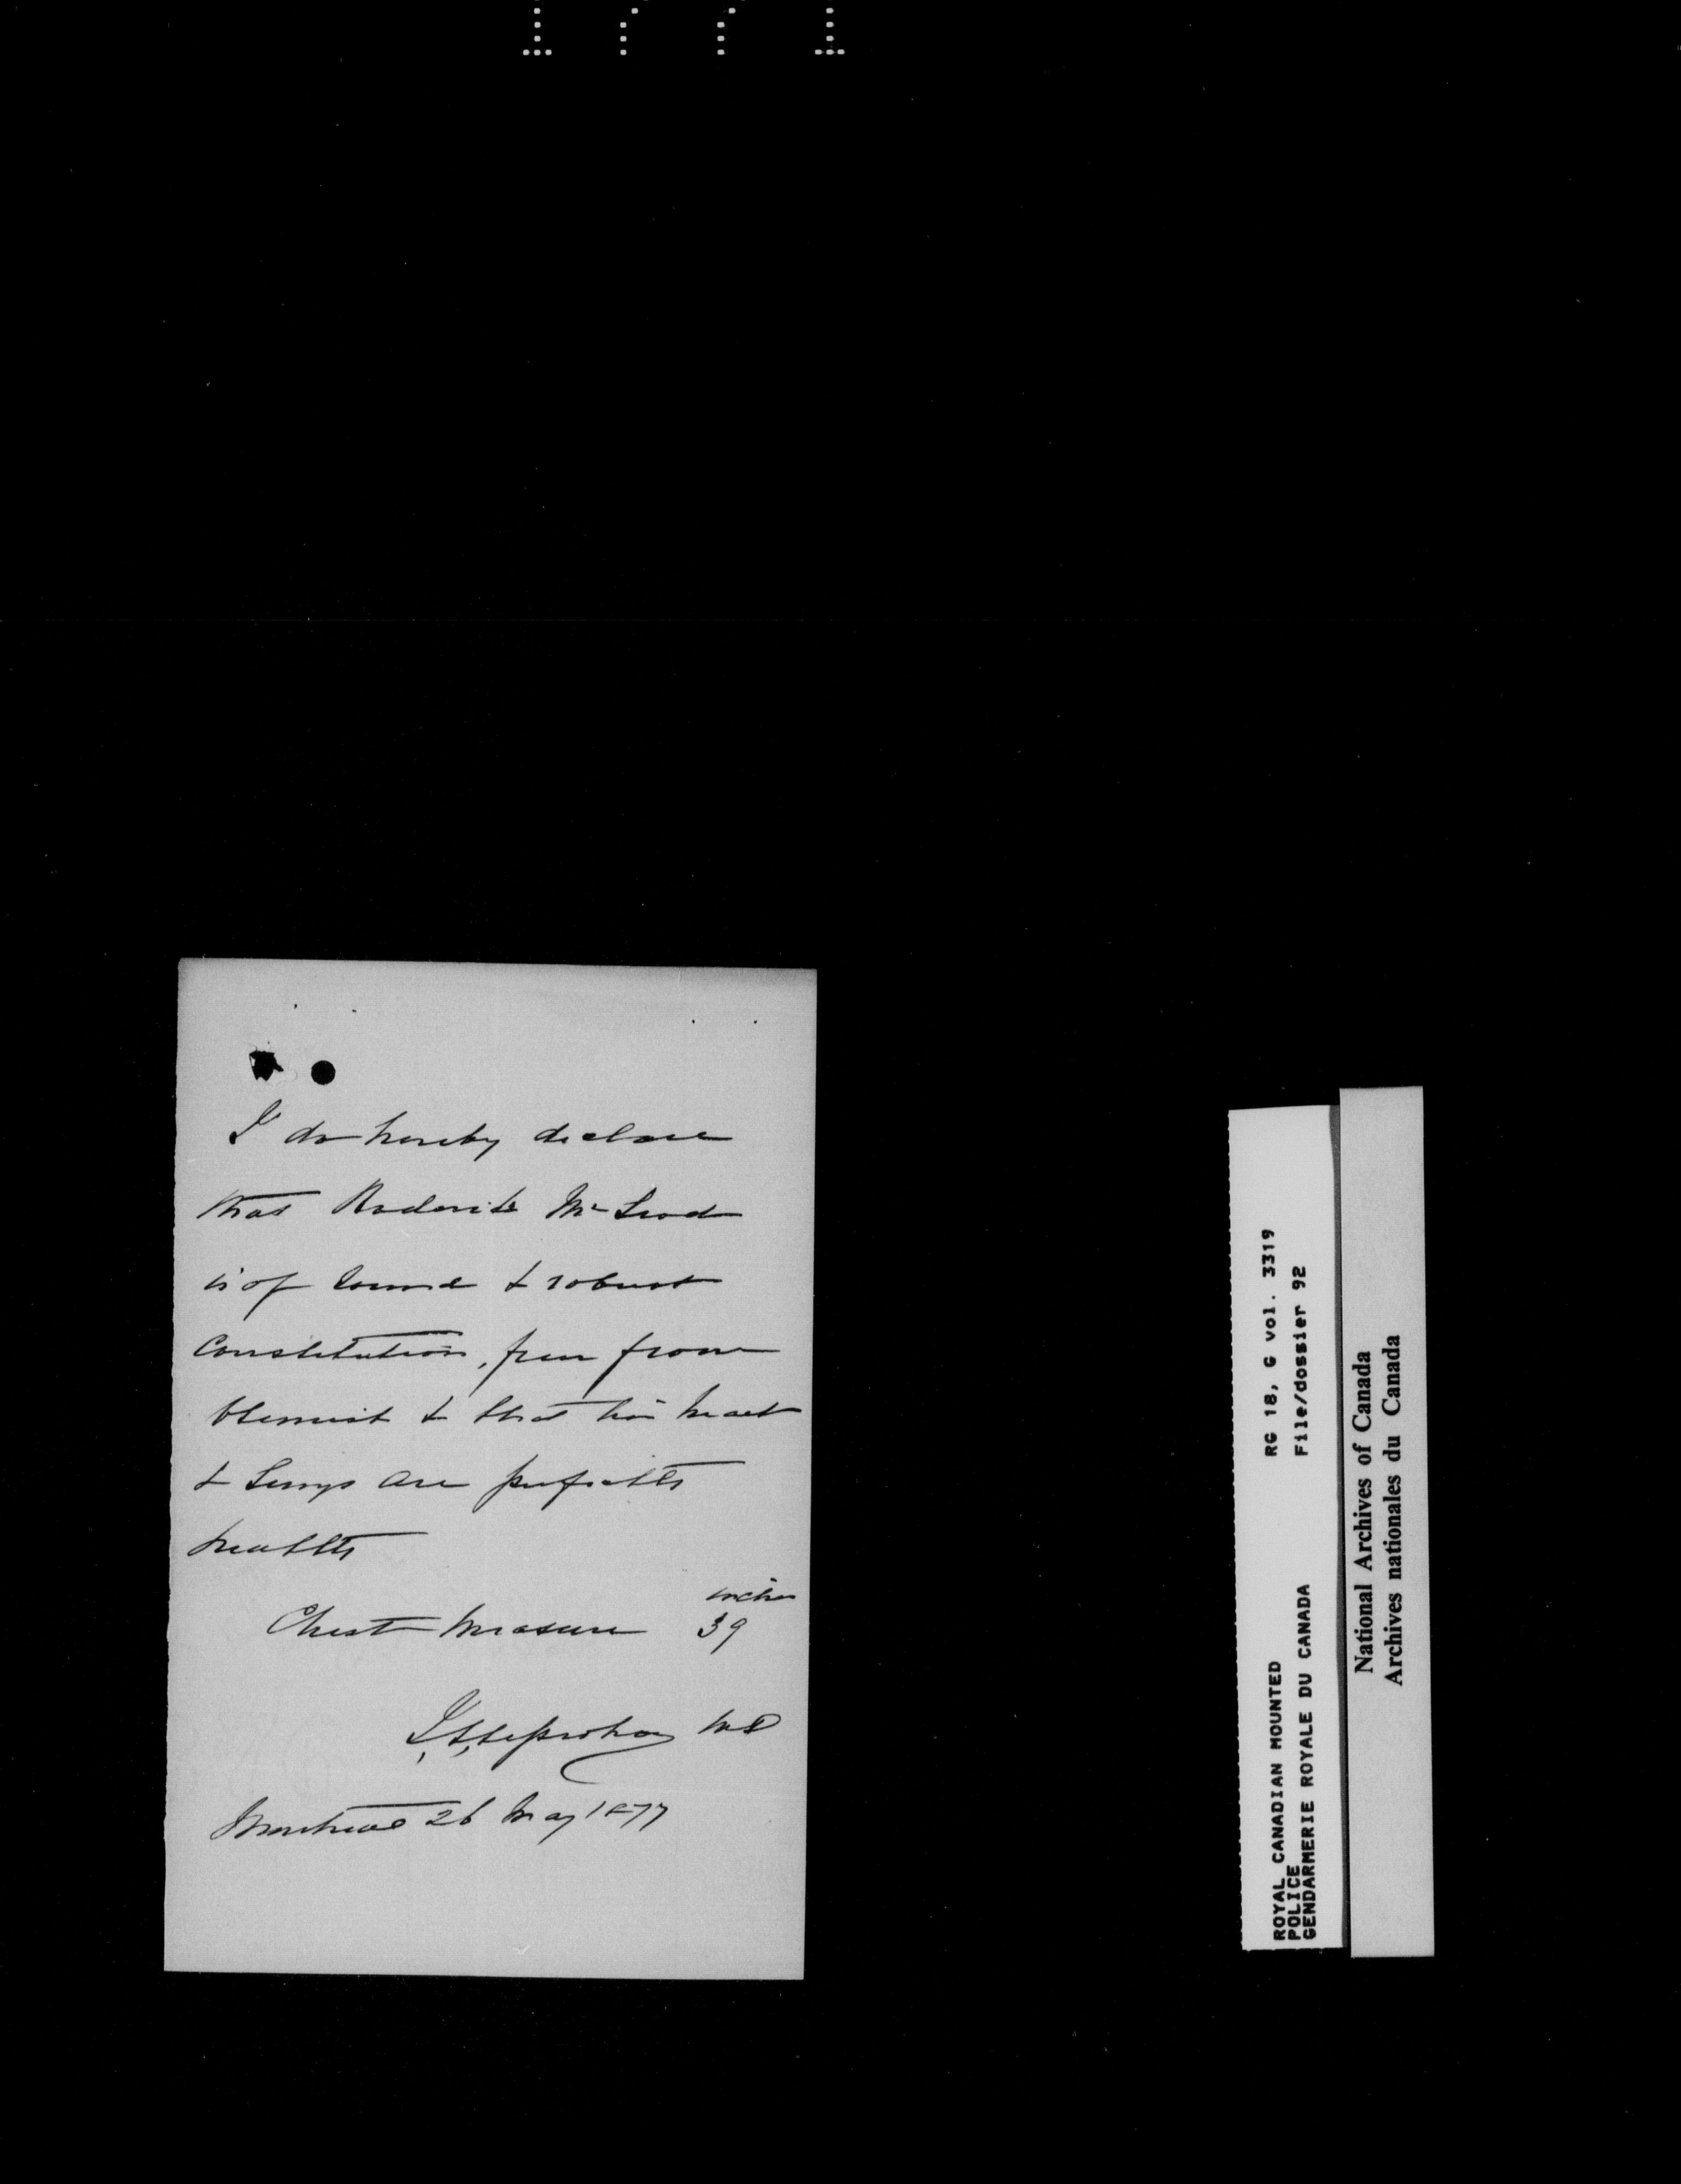 I do hereby declare
that Roderick McLeod
is of sound & robust
Constitution, free from
blemish & that his heart
& Lungs are perfectly
healthy
inches
Chest measure 39
MD
Montreal 26 May 1877
ROYAL CANADIAN MOUNTED
POLICE
GENDARMERIE ROYALE DU CANADA
RG 18, G vol. 3319
File/dossier 92
National Archives of Canada
Archives nationales du Canada